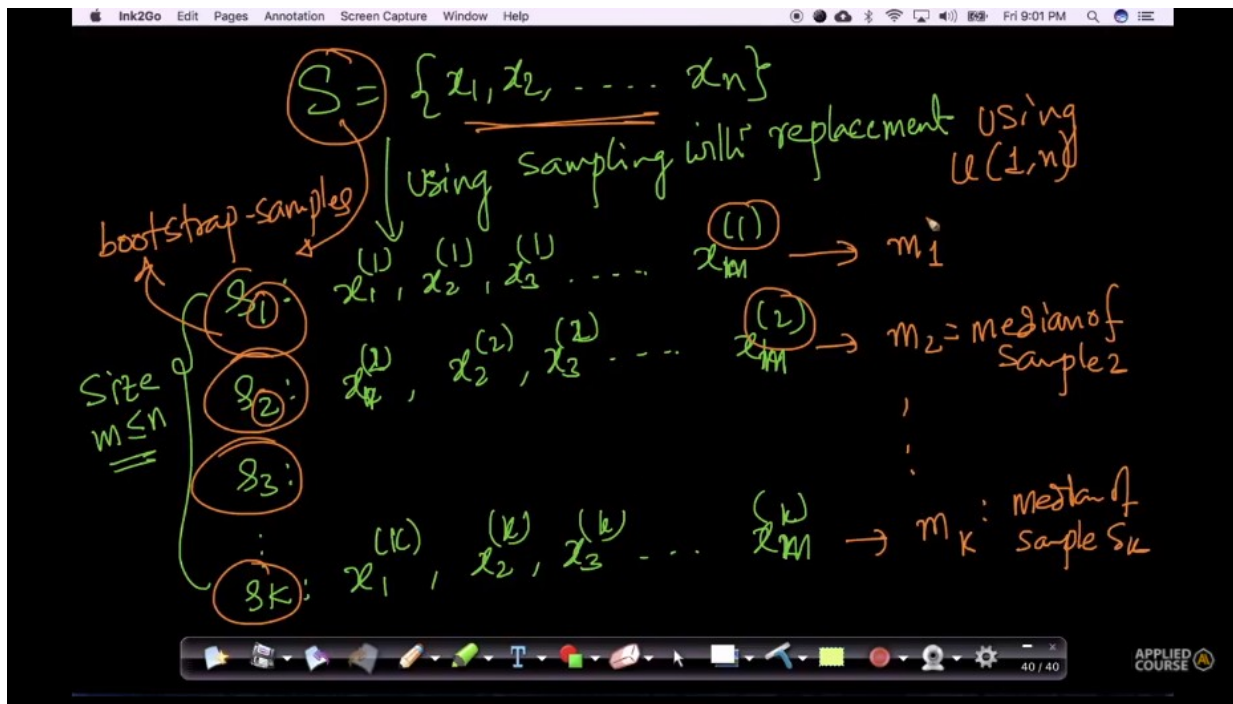 Ink2Go Edit Pages Annotation Screen Capture Window Help Fri 9:01 PM
S = {x1, x2, ..... xn}
using sampling with replacement using
U(1,n)
bootstrap-samples
s1: x1^(1), x2^(1), x3^(1) ..... xm^(1) → m1
s2: x1^(2), x2^(2), x3^(2) ..... xm^(2) → m2 = median of
sample 2
Size
m≤n
s3:
⋮
sk: x1^(k), x2^(k), x3^(k) ... xm^(k) → mk: median of
sample Sk
40 / 40
APPLIED
COURSE